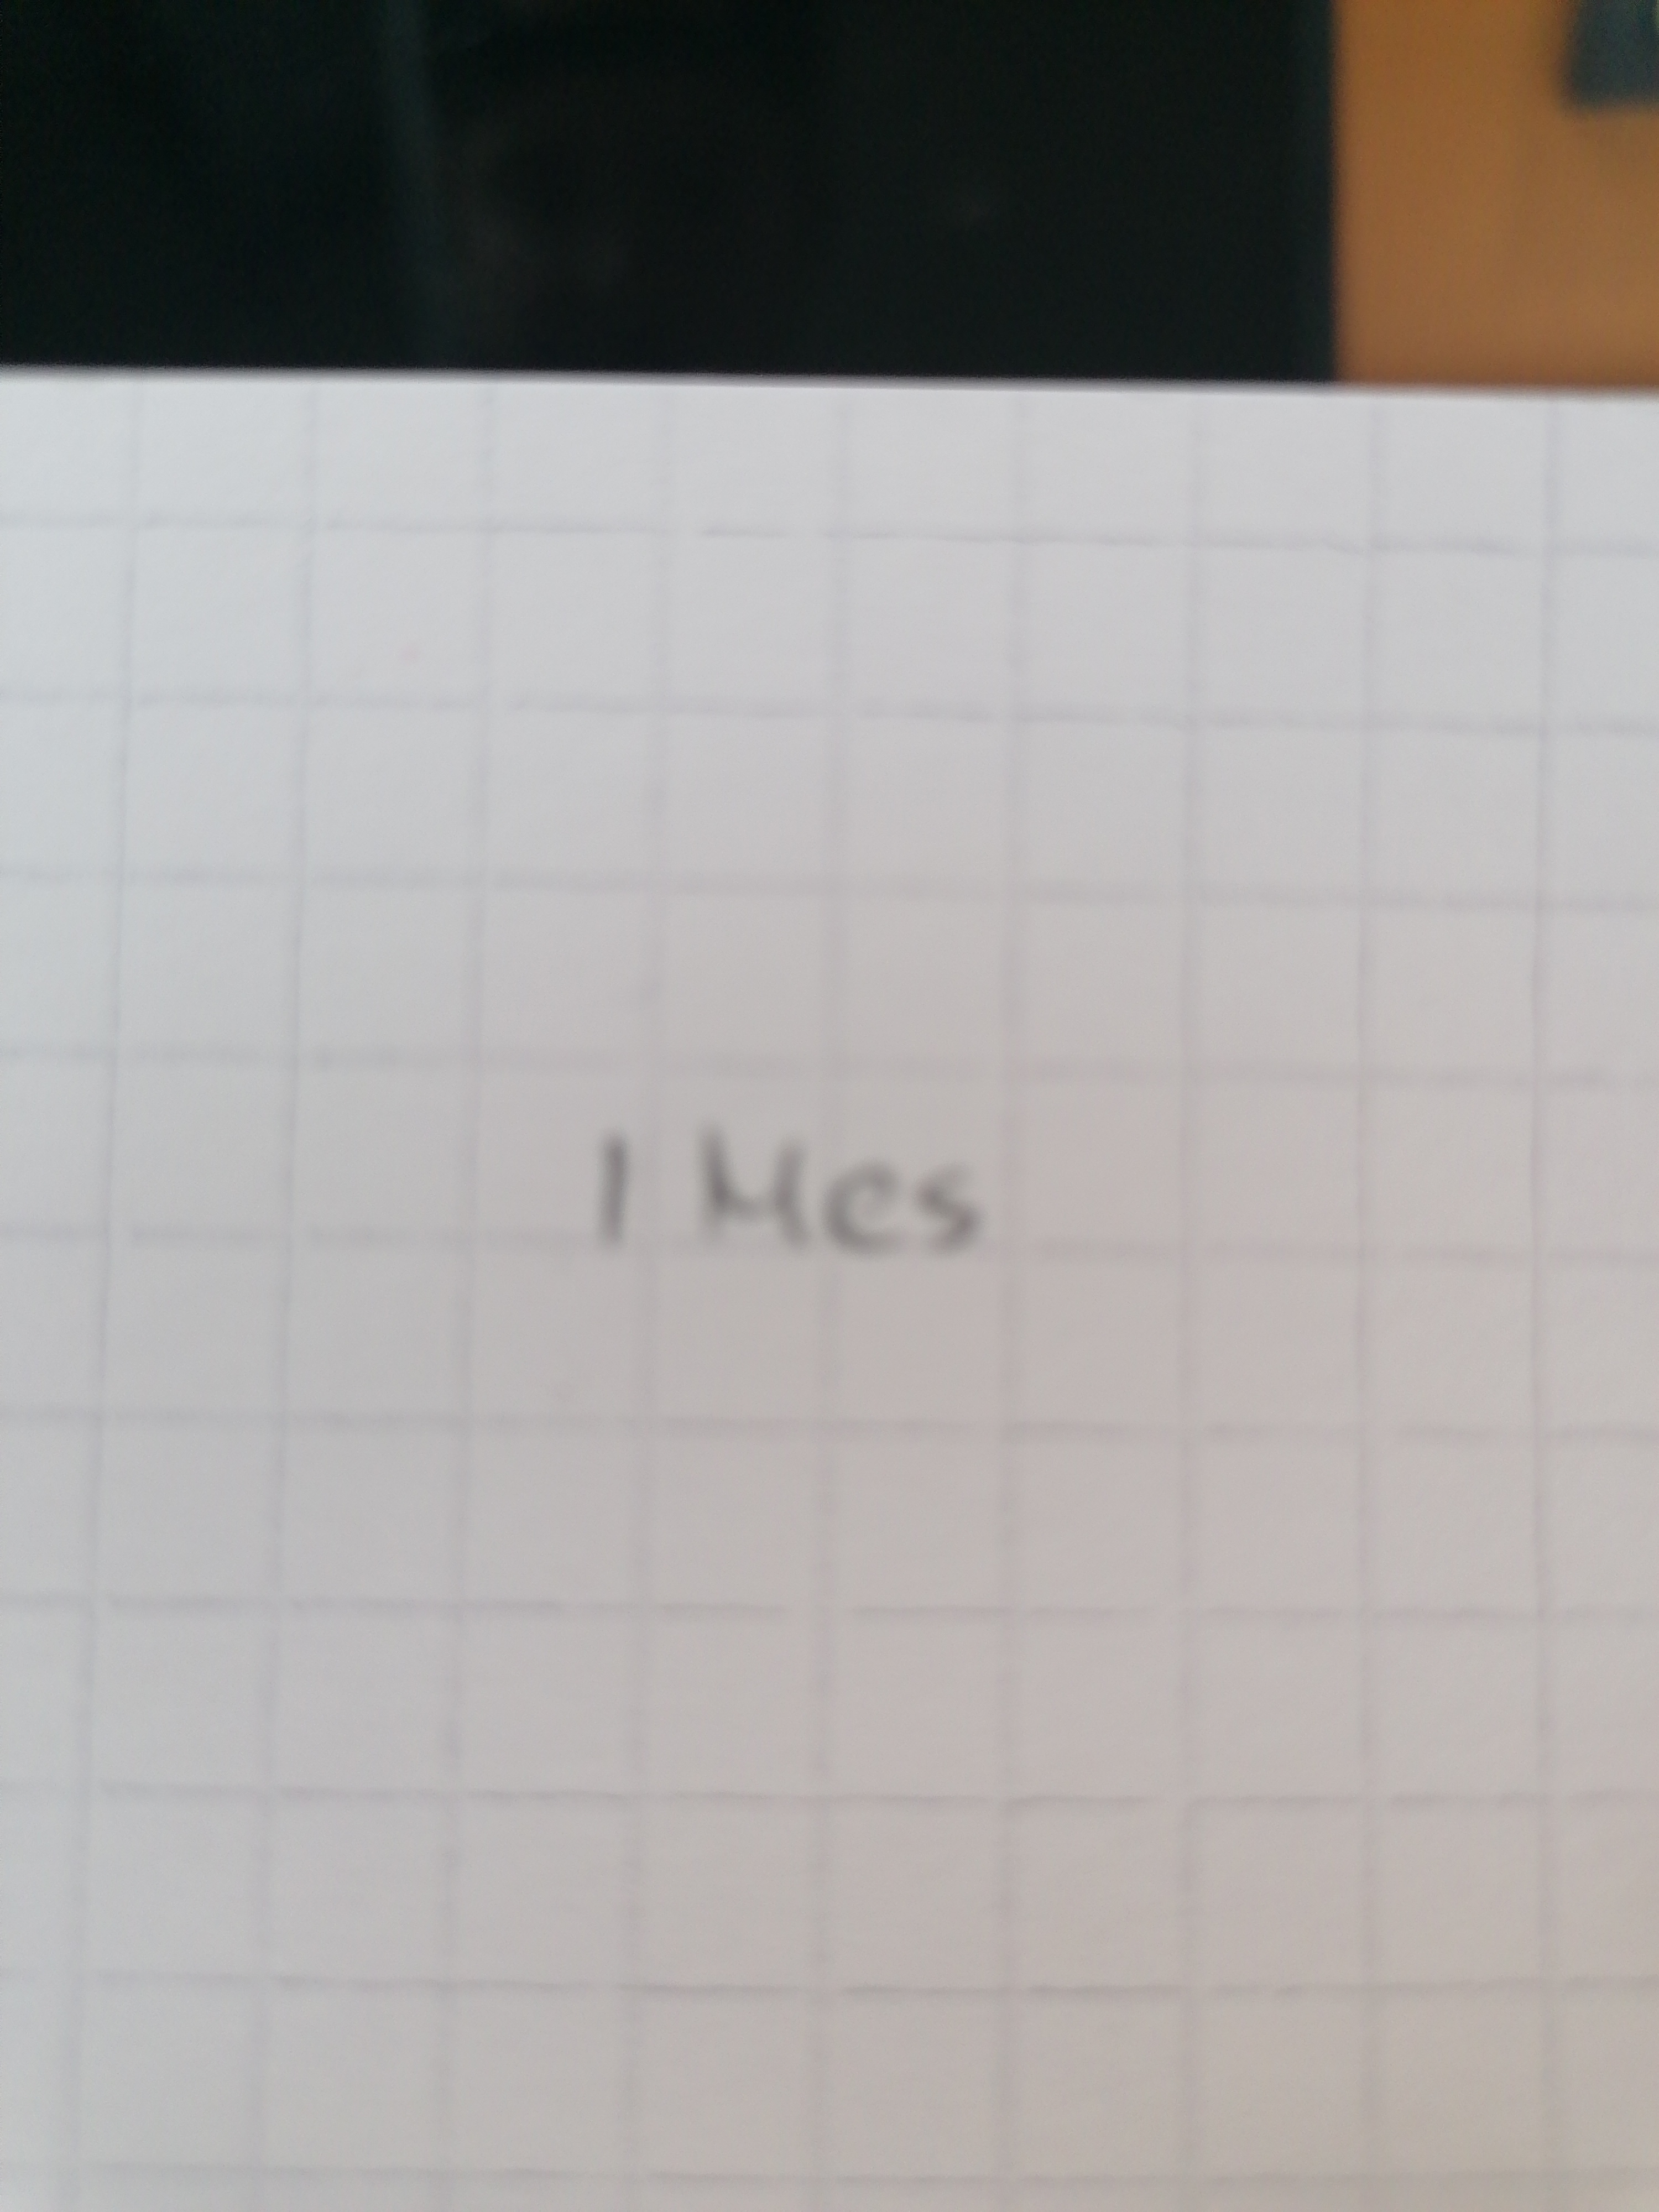 1 Mes